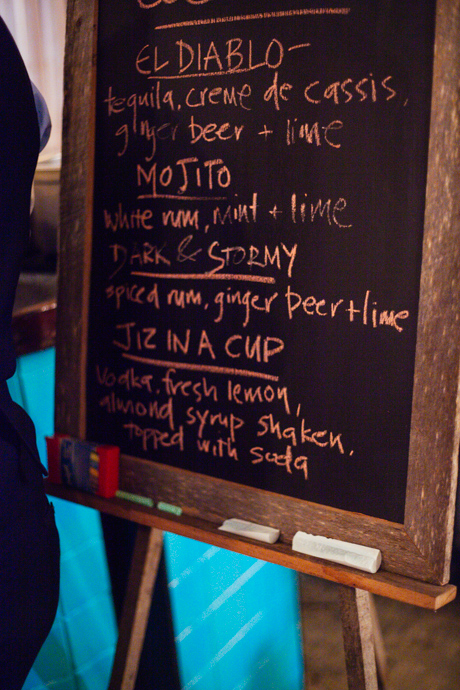 EL DIABLO-
tequila, creme de cassis,
ginger beer + lime
MOJITO
white rum, mint + lime
DARK & STORMY
spiced rum, ginger beer + lime
JIZ IN A CUP
Vodka, fresh lemon,
almond syrup shaken,
topped with soda